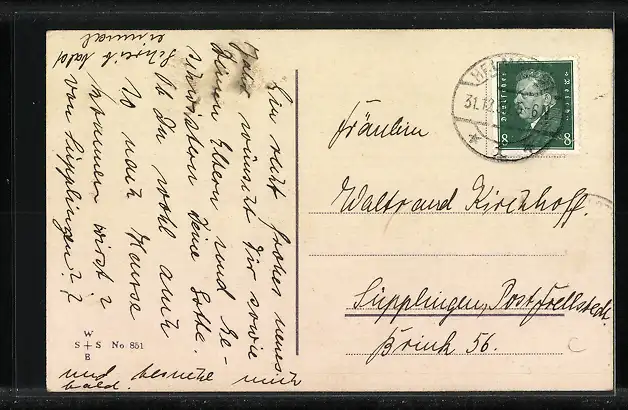 Ein recht frohes neues
Jahr wünscht Dir sowie
Deinen Eltern und Ge-
schwistern Deine Lotte.
Ob Du wohl auch
so nach Hause
kommen wirst?
von Süpplingen??
Schreib bald
einmal
und besuche mich
bald.
W
S S No 851
B
HELM
31.12.
Deutsches Reich
8 8
Fräulein
Waltraud Kirchhoff.
Süpplingen, Post Frellstedt.
Brink 56.
C